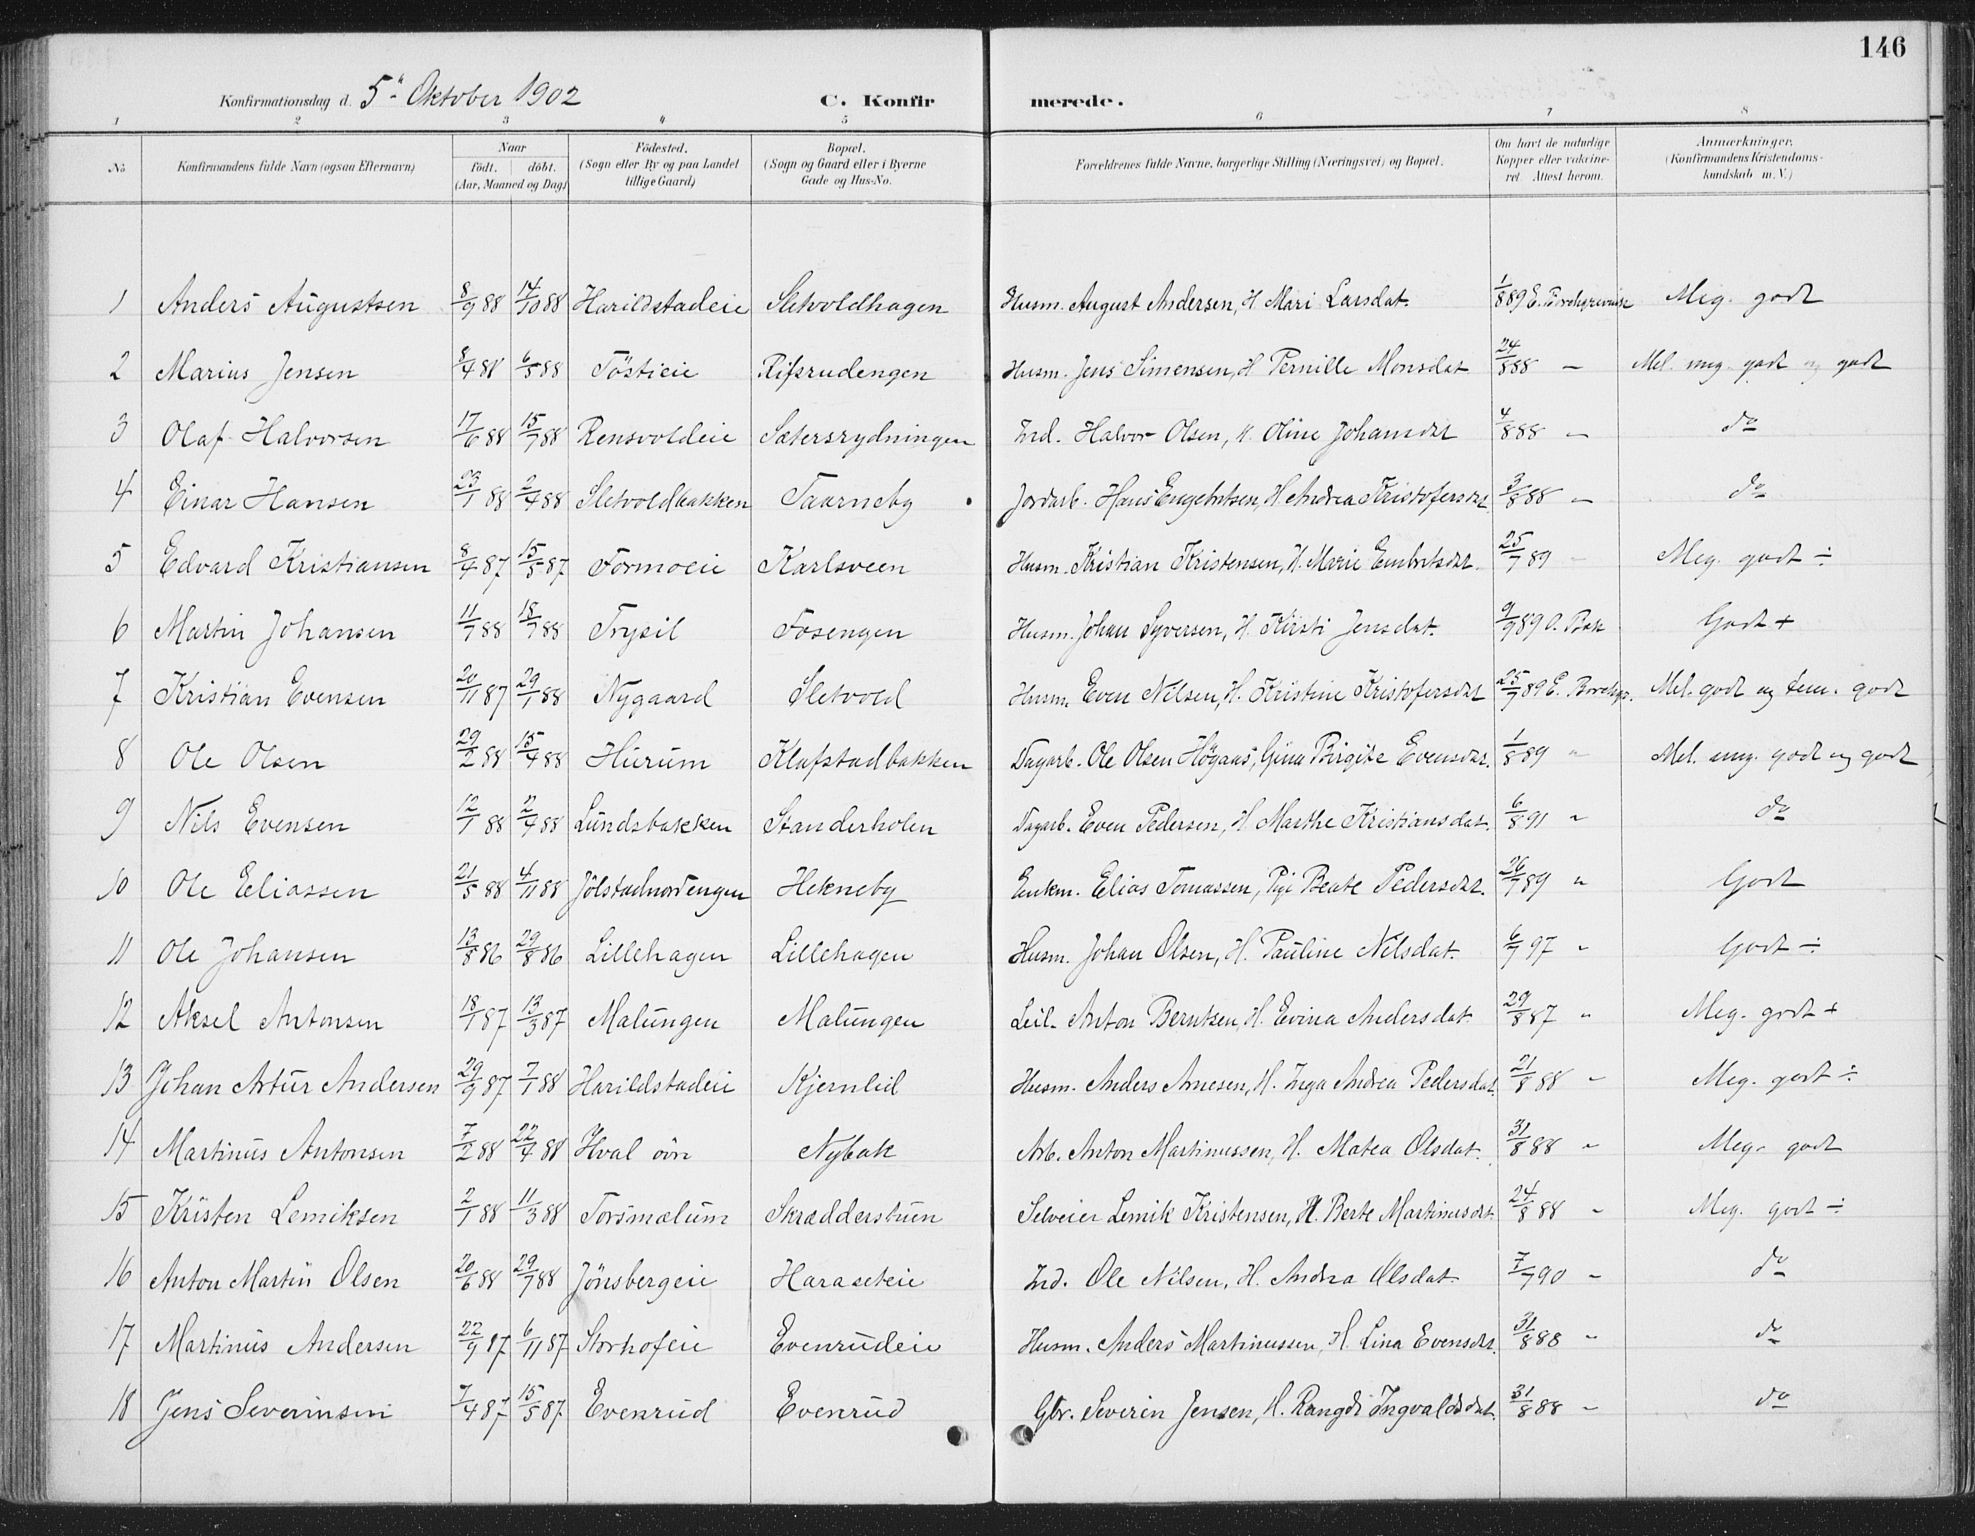 146
Konfirmationsdag d. 5te Oktober 1902 C. Konfir merede.
1 2 3 4 5 6 7 8
No Konfirmandens fulde Navn (ogsaa Efternavn) Naar født. døbt. (Aar, Maaned og Dag) Födested. (Sogn eller By og paa Landet tillige Gaard) Bopæl. (Sogn og Gaard eller i Byerne Gade og Hus-No. Forældrenes fulde Navne, borgerlige Stilling (Næringsvei) og Bopæl. Om havt de naturlige Kopper eller vakcineret. Attest herom. Anmærkninger. (Konfirmandens Kristendomskundskab m. V.)
1 Anders Augustsen 8/9 88 14/10 88 Harildstadeie Sletvoldhagen Husm. August Andersen, H. Mari Larsdat. 1/8 89 E. Meg. godt
2 Marius Jensen 8/4 88 6/5 88 Töstieie Rifsrudengen Husm. Jens Simensen, H. Pernille Monsdat 24/8 88 – Mel. meg. godt og godt
3 Olaf Halvorsen 17/6 88 15/7 88 Rensvoldeie Sætersrydningen Ind. Halvor Olsen, H. Oline Johansdat 4/8 88 – do
4 Einar Hansen 23/1 88 2/4 88 Sletvoldbakken Taarneby Jordarb. Hans Engebretsen, H. Andrea Kristofersdat. 3/8 88 – do
5 Edvard Kristiansen 8/4 87 15/5 87 Formoeie Karlsveen Husm. Kristian Kristensen, H. Marie Embretsdat. 25/7 89 – Meg. godt ÷
6 Martin Johansen 11/7 88 18/7 88 Trysil Fosengen Husm. Johan Syversen, H. Kirsti Jensdat. 9/9 89 O. Bak Godt +
7 Kristian Evensen 20/11 87 29/1 88 Nygaard Sletvold Husm. Even Nilsen, H. Kristine Kristofersdat 25/7 89 E. Mel. godt og tem. godt
8 Ole Olsen 29/2 88 15/4 88 Hurum Klafstadbakken Dagarb. Ole Olsen Högaas, Gina Birgite Evensdat. 1/8 89 " Mel. meg. godt og godt
9 Nils Evensen 12/1 88 2/4 88 Lundsbakken Standerholen Dagarb. Even Pedersen, H. Marthe Kristiansdat. 6/8 91 " do
10 Ole Eliassen 21/5 88 4/11 88 Jölstadnordengen Hekneby Enkm. Elias Tomassen, Pige Beate Pedersdat. 26/7 89 " Godt
11 Ole Johansen 13/8 86 29/8 86 Lillehagen Lillehagen Husm. Johan Olsen, H. Pauline Nilsdat. 6/7 97 " Godt ÷
12 Aksel Antonsen 18/1 87 13/3 87 Malungen Malungen Leil. Anton Berntsen, H. Evina Andersdat. 29/8 87 " Meg. godt +
13 Johan Artur Andersen 29/9 87 7/1 88 Harildstadeie Kjernlid Husm. Anders Arnesen, H. Inga Andrea Pedersdat. 21/8 88 " Meg. godt ÷
14 Martinus Antonsen 7/2 88 22/4 88 Hval övr Nybak Arb. Anton Martinussen, H. Matea Olsdat. 31/8 88 " Meg. godt
15 Kristen Lemiksen 2/1 88 11/3 88 Torsmælum Skrædderstuen Selveier Lemik Kristensen, H. Berte Martinusdat. 24/8 88 " Meg. godt ÷
16 Anton Martin Olsen 20/6 88 29/7 88 Jönsbergeie Haraseteie Ind. Ole Nilsen, H. Andrea Olsdat. 7/7 90 " do
17 Martinus Andersen 22/9 87 6/11 87 Storhofeie Evenrudeie Husm. Anders Martinussen, H. Lina Evensdat. 31/8 88 " do
18 Jens Severinsen 7/4 87 15/5 87 Evenrud Evenrud Gbr. Severin Jensen, H. Rangdi Ingvaldsdat. 31/8 88 " do